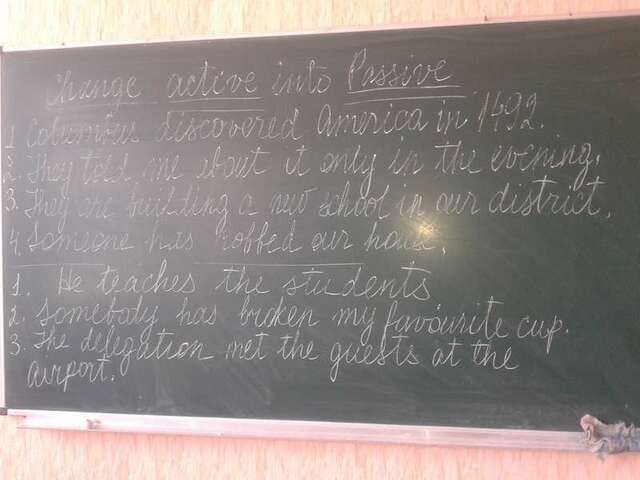 Change active into Passive
1 Columbus discovered America in 1492.
2. They told me about it only in the evening.
3. They are building a new school in our district.
4. Someone has robbed our house.
1. He teaches the students
2. Somebody has broken my favourite cup.
3. The delegation met the guests at the
airport.